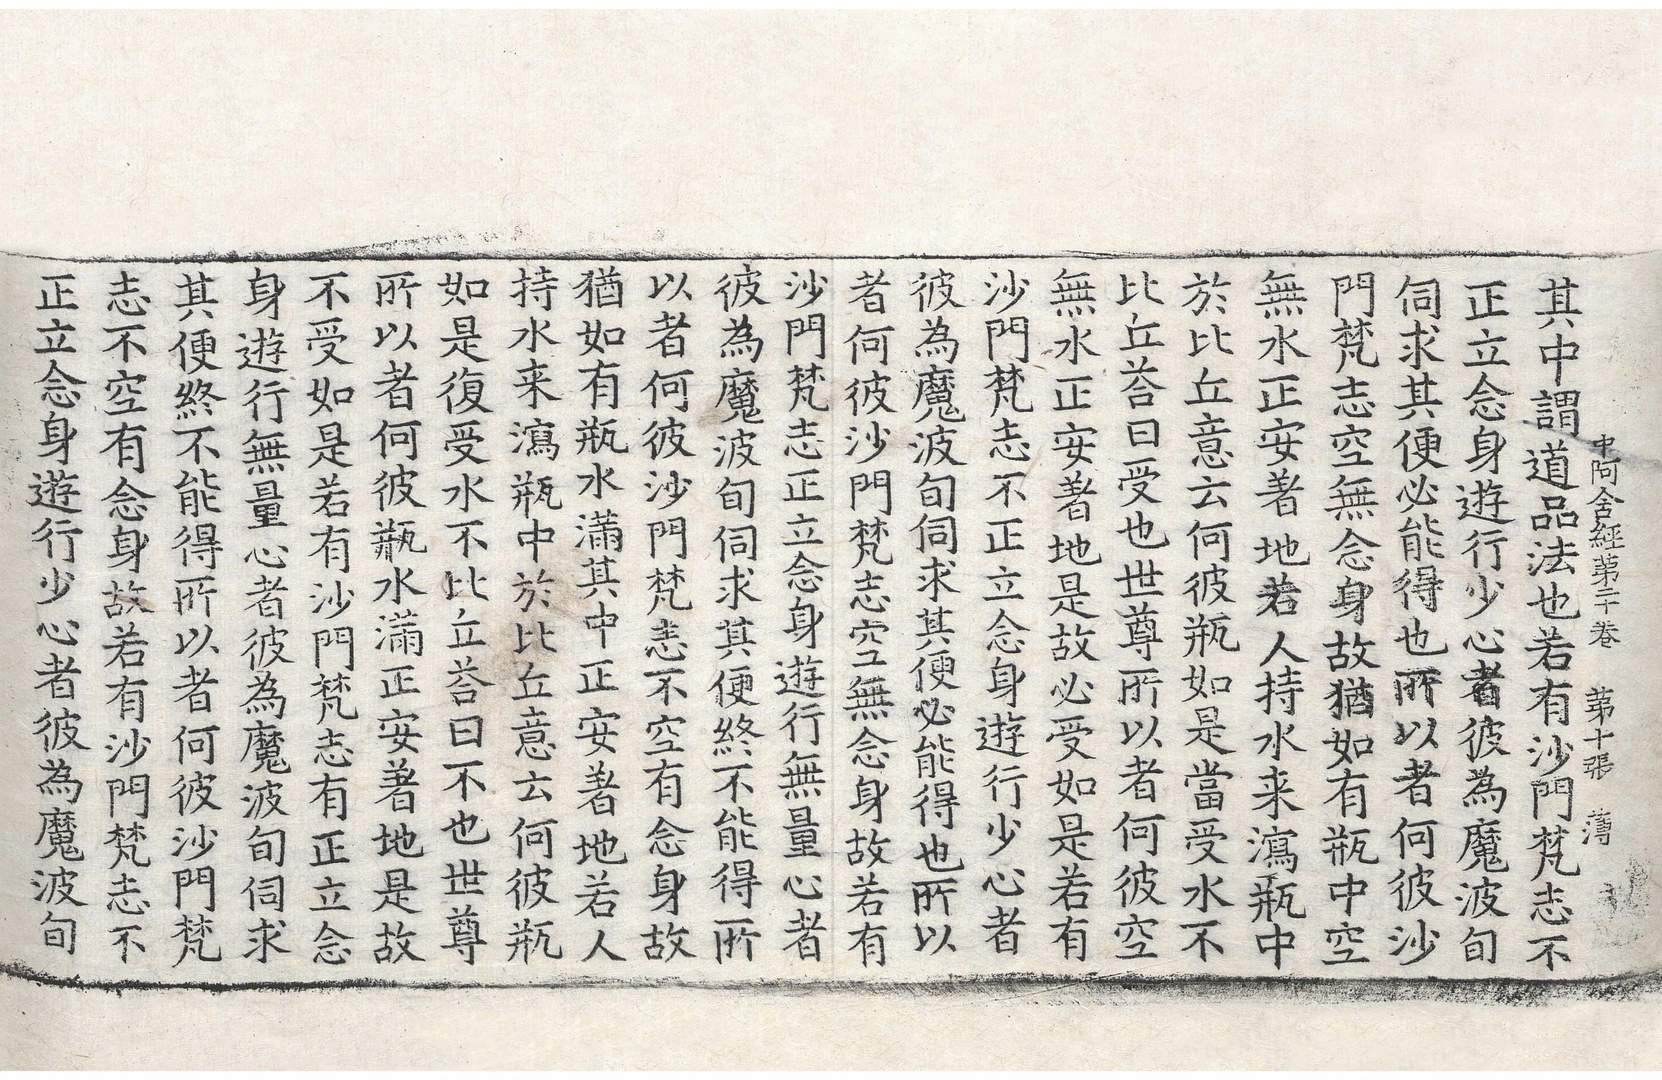 中阿含經第二十卷 第十張 薄
其中謂道品法也若有沙門梵志不
正立念身遊行少心者彼為魔波旬
伺求其便必能得也所以者何彼沙
門梵志空無念身故猶如有瓶中空
無水正安著地若人持水来瀉瓶中
於比丘意云何彼瓶如是當受水不
比丘荅曰受也世尊所以者何彼空
無水正安著地是故必受如是若有
沙門梵志不正立念身遊行少心者
彼為魔波旬伺求其便必能得也所以
者何彼沙門梵志空無念身故若有
沙門梵志正立念身遊行無量心者
彼為魔波旬伺求其便終不能得所
以者何彼沙門梵志不空有念身故
猶如有瓶水滿其中正安著地若人
持水来瀉瓶中於比丘意云何彼瓶
如是復受水不比丘荅曰不也世尊
所以者何彼瓶水滿正安著地是故
不受如是若有沙門梵志有正立念
身遊行無量心者彼為魔波旬伺求
其便終不能得所以者何彼沙門梵
志不空有念身故若有沙門梵志不
正立念身遊行少心者彼為魔波旬